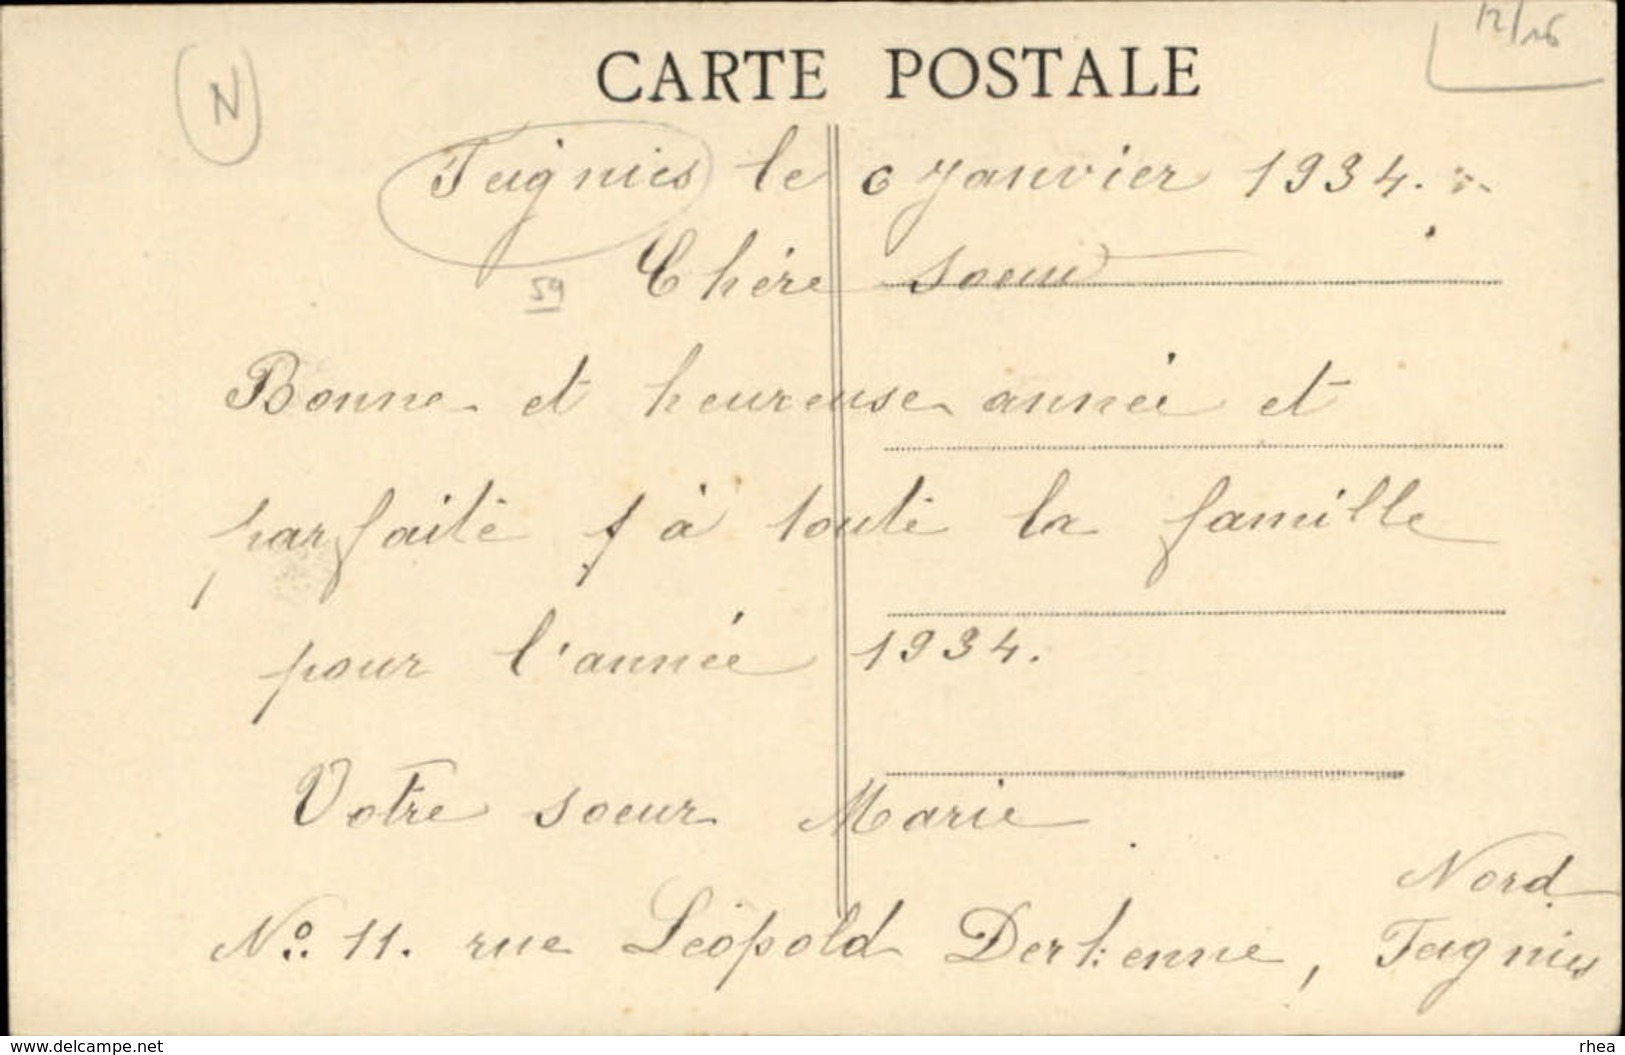 12/16
N
CARTE POSTALE
Feignies le 6 Janvier 1934.
Chère soeur
59
Bonne et heureuse année et
parfaite à toute la famille
pour l'année 1934.
Votre soeur Marie
Nord
No. 11. rue Léopold Derkenne, Feignies
www.delcampe.net
rhea